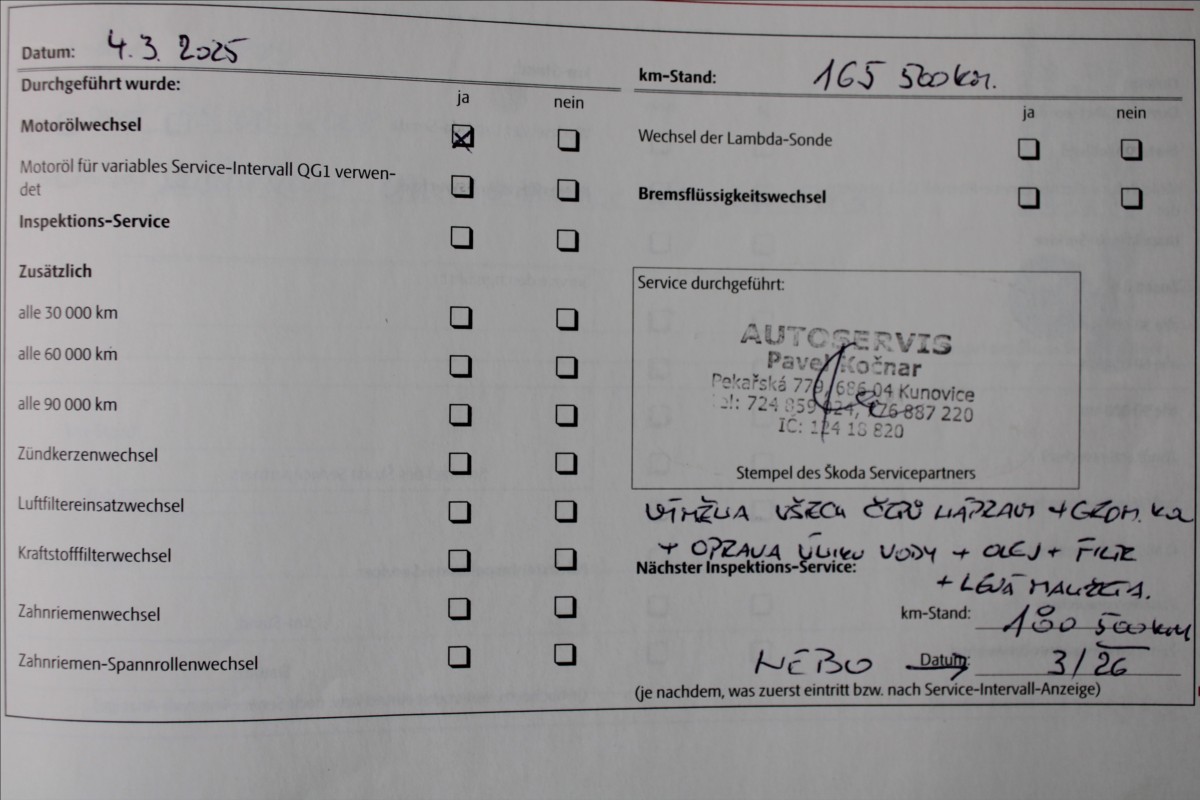 Datum: 4. 3. 2025
Durchgeführt wurde:
ja nein
Motorölwechsel
Motoröl für variables Service-Intervall QG1 verwen-
det
Inspektions-Service
Zusätzlich
alle 30 000 km
alle 60 000 km
alle 90 000 km
Zündkerzenwechsel
Luftfiltereinsatzwechsel
Kraftstofffilterwechsel
Zahnriemenwechsel
Zahnriemen-Spannrollenwechsel
km-Stand: 165 500 km.
ja nein
Wechsel der Lambda-Sonde
Bremsflüssigkeitswechsel
Service durchgeführt:
AUTOSERVIS
Pavel Kočnar
Pekařská 779, 686 04 Kunovice
tel: 724 859 924, 776 887 220
IČ: 124 18 820
Stempel des Škoda Servicepartners
VÝMĚNA VŠECH ČEPŮ NÁPRAVY + GEOM. KOL
+ OPRAVA ÚNIKU VODY + OLEJ + FILTR
Nächster Inspektions-Service:
+ LEVÁ MANŽETA.
km-Stand: 180 500 km
NEBO Datum: 3/26
(je nachdem, was zuerst eintritt bzw. nach Service-Intervall-Anzeige)